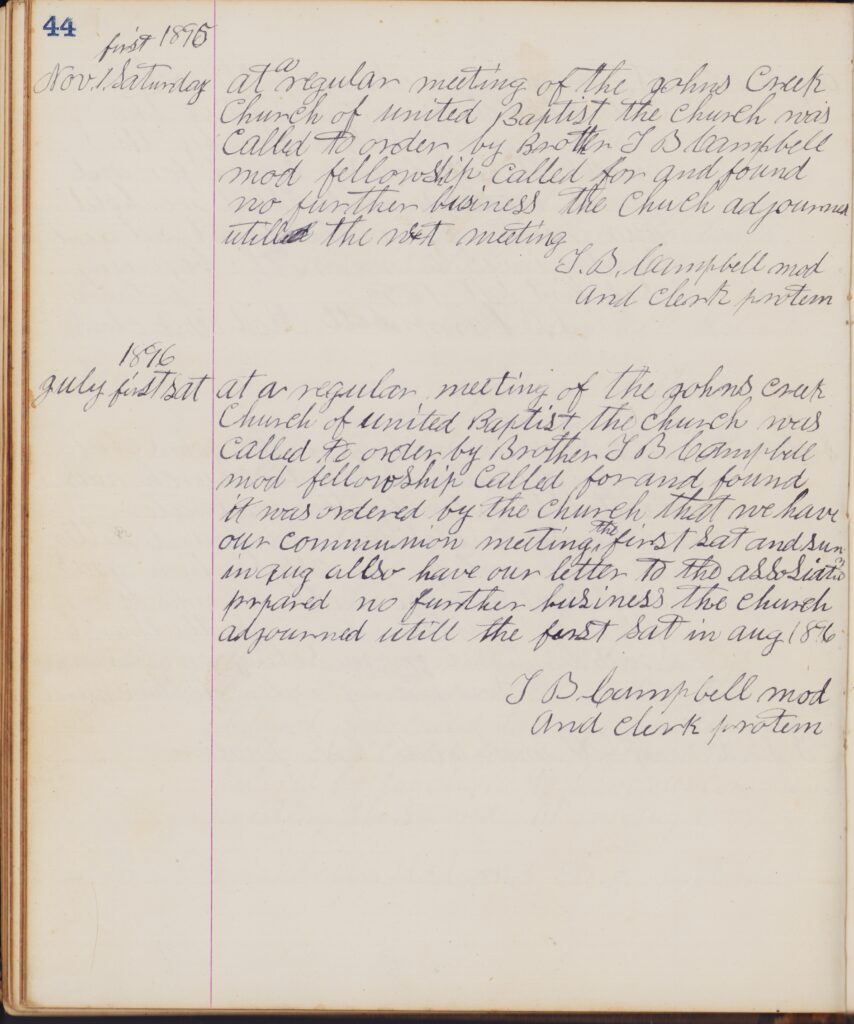 44
first 1895
Nov. 1. Saturday
at a regular meeting of the johns Creek
Church of united Baptist the church was
Called to order by Brother T B Campbell
mod fellowship called for and found
no further business the Chuch adjourned
utill the next meeting
T. B. Campbell mod
and clerk protem
1896
july first sat
at a regular meeting of the johns creek
Church of united Baptist the church was
Called to order by Brother T B Campbell
mod fellowship Called for and found
it was ordered by the church that we have
our communion meeting the first Sat and sun
in aug allso have our letter to the
prpared no further business the church
adjourned utill the first Sat in aug 1896
T B Campbell mod
and clerk protem